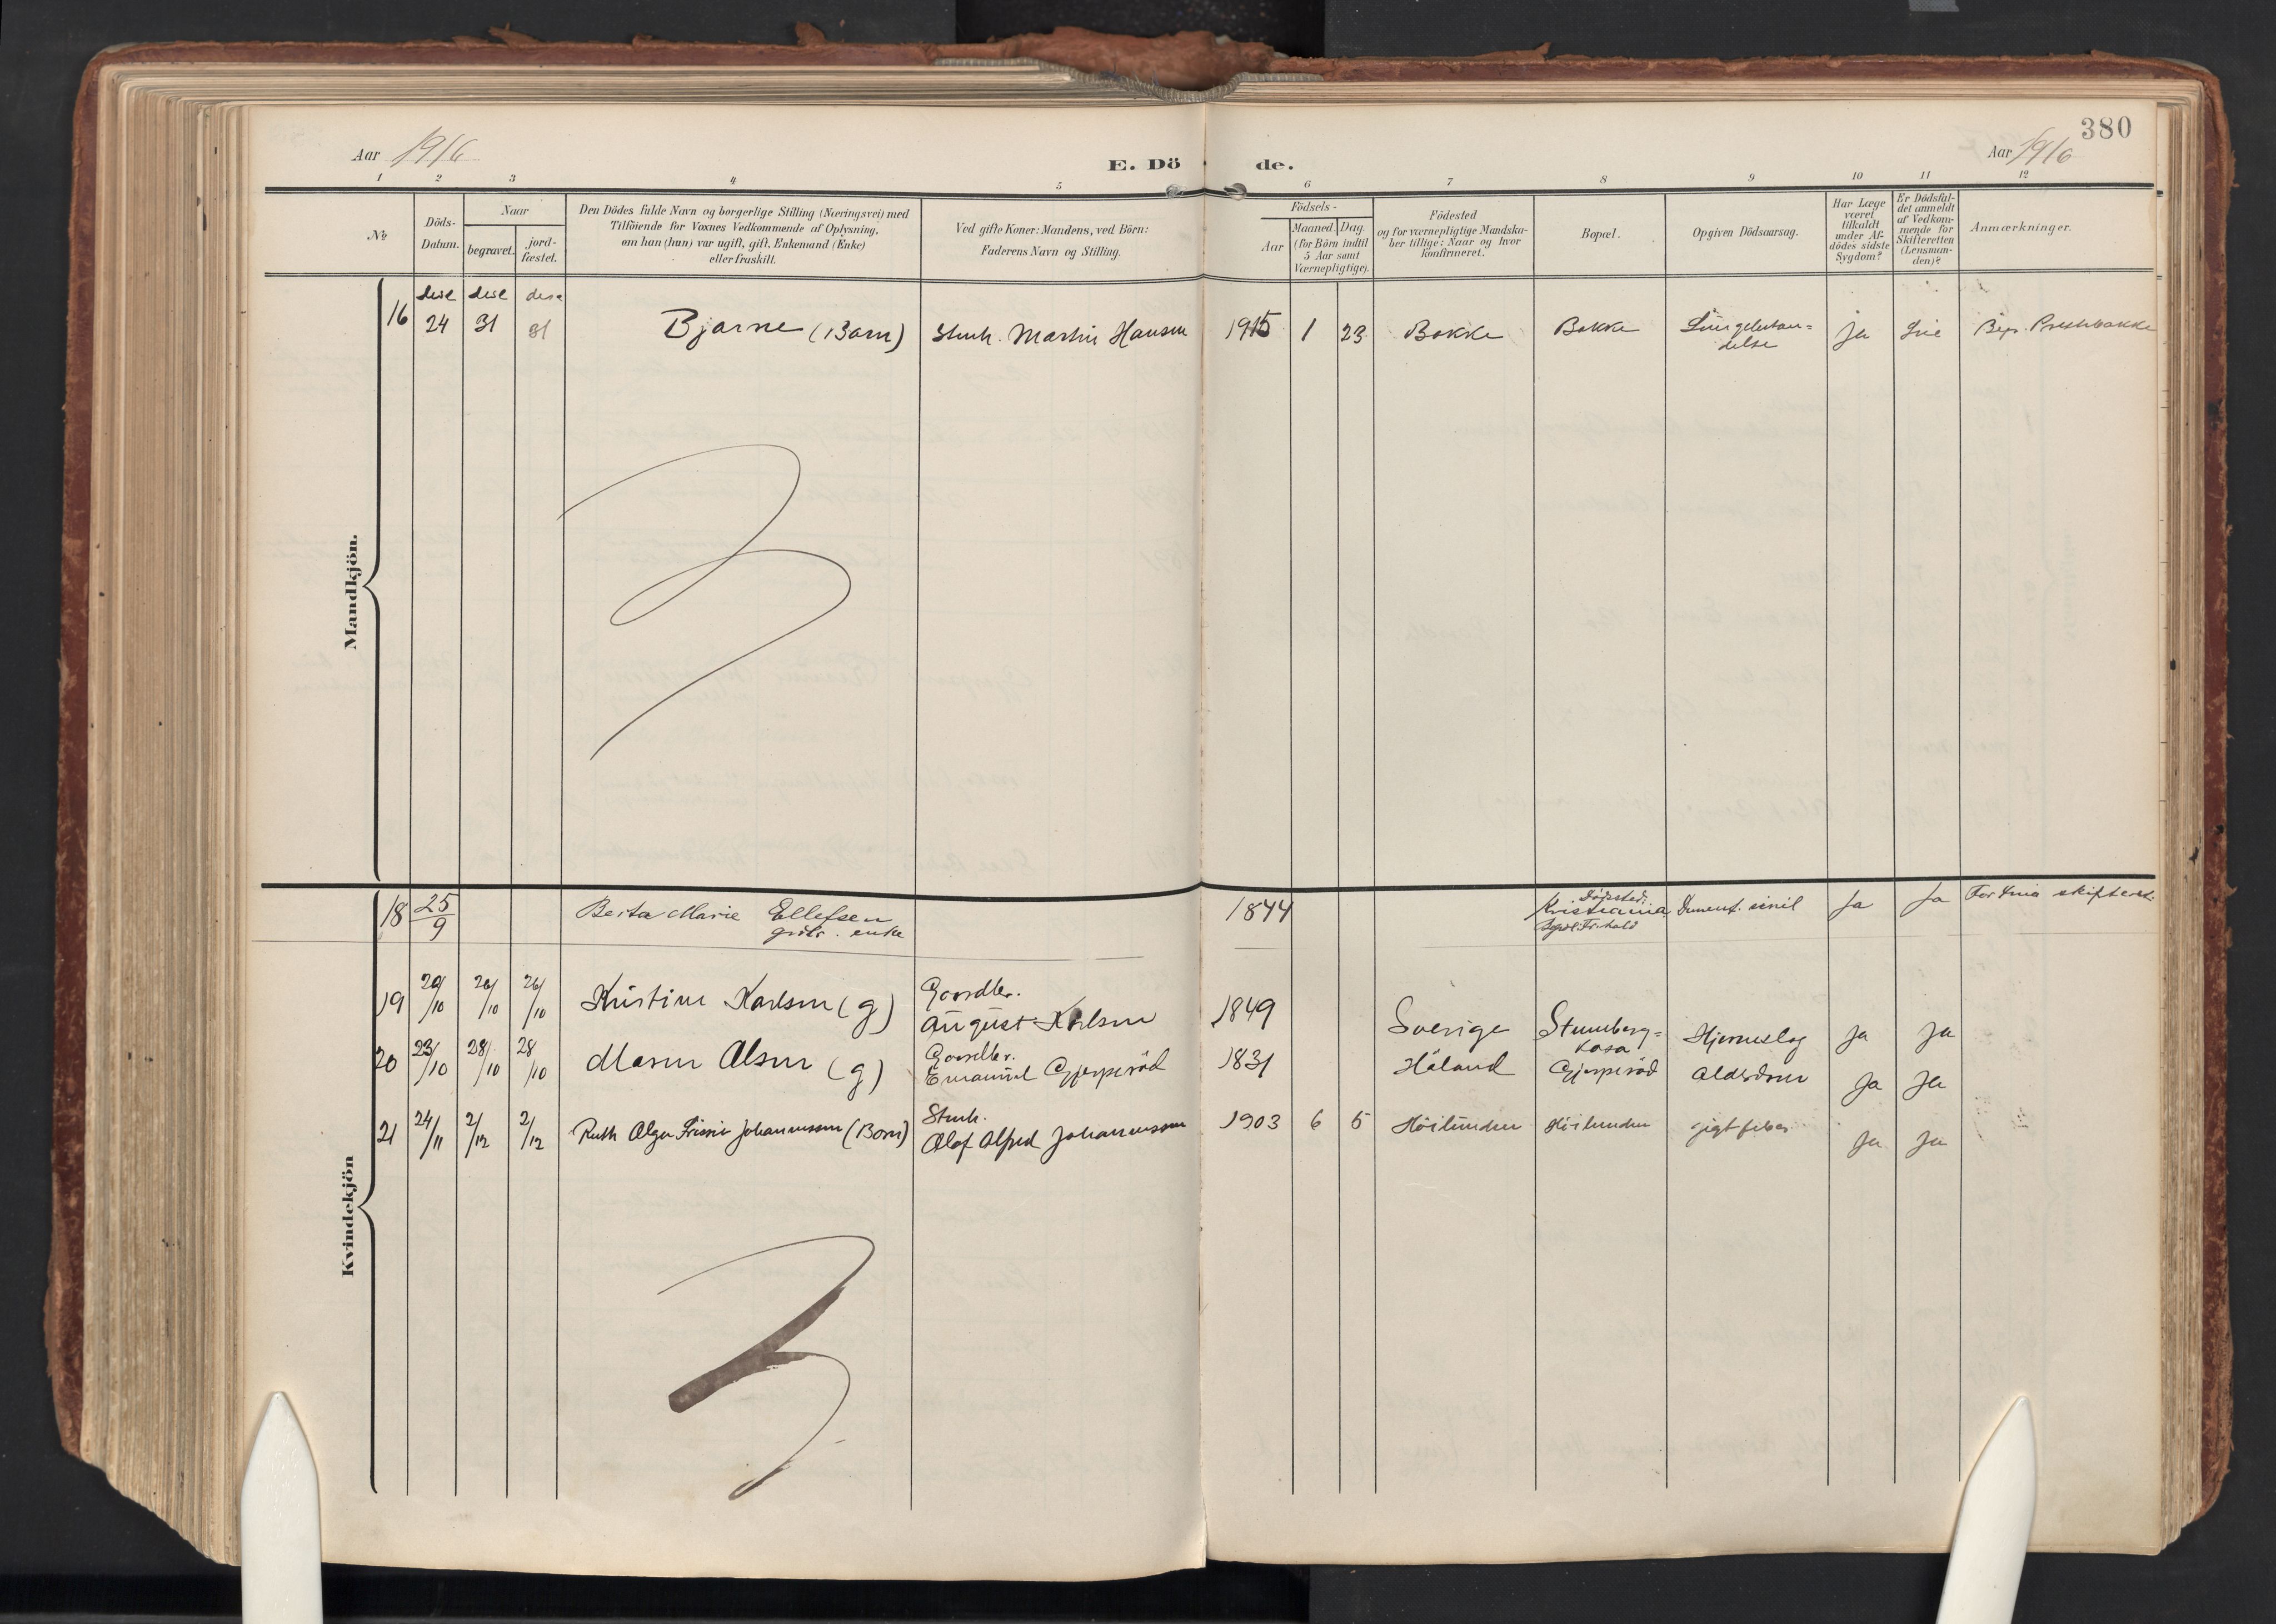 380
Aar 1916
E. Dö de.
Aar 1916
1 2 3 4 5 6 7 8 9 10 11 12
№
Döds-
Datum.
Naar
begravet.
jord-
fæstet.
Den Dödes fulde Navn og borgerlige Stilling (Næringsvei) med
Tilföiende for Voxnes Vedkommende af Oplysning,
om han (hun) var ugift, gift, Enkemand (Enke)
eller fraskilt.
Ved gifte Koner: Mandens, ved Börn:
Faderens Navn og Stilling.
Födsels-
Aar
Maaned. Dag.
(for Börn indtil
5 Aar samt
Værnepligtige).
Födested
og for værnepligtige Mandska-
ber tillige: Naar og hvor
konfirmeret.
Bopæl.
Opgiven Dödsaarsag.
Har Læge
været
tilkaldt
under Af-
dödes sidste
Sygdom?
Er Dödsfal-
det anmeldt
af Vedkom-
mende for
Skifteretten
(Lensman-
den)?
Anmærkninger.
Mandkjön.
16 24 31 31 Bjarne (Barn) Martin Hansen 1915 1 23 Bakke Bakke
delse Ja
Kvindekjön
18 25/9 Berta Marie Ellefsen 1844 Kristiania senil Ja Ja skifteret.
enke
19 20/10 26/10 26/10 Kristine Karlsen (g) Gaardbr.
August Karlsen 1849 Sverige Hjerneslag Ja Ja
kasa
20 23/10 28/10 28/10 Maren Olsen (g) Gaardbr.
Emanuel Gjerperöd 1831 Höland Gjerperöd Alderdom Ja Ja
21 24/11 2/12 2/12 Ruth Olga Johannessen (Barn)
Olof Alfred Johannessen 1903 6 5 Höilunden Höilunden gigtfeber Ja Ja